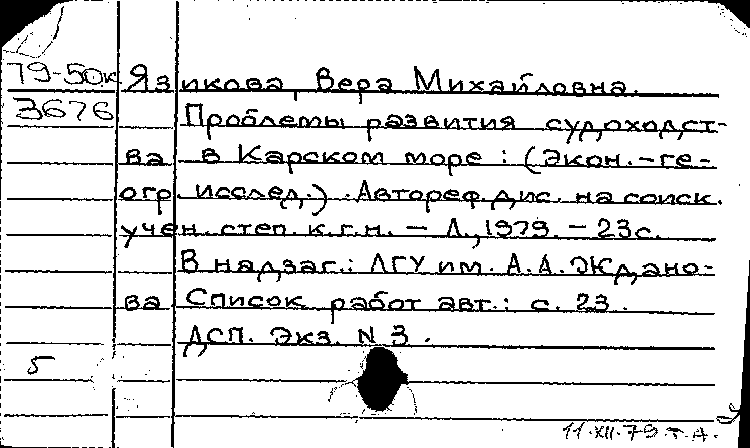 79-50к Язикова, Вера Михайловна.
3676 Проблемы развития судоходст-
ва в Карском море : (Экон.-ге-
огр. исслед.) . Автореф. дис. на соиск.
учен. степ. к.г.н. – Л., 1979. – 23с.
В надзаг.: ЛГУ им. А.А. Ждано-
ва Список работ авт.: с. 23.
ДСП. Экз. N 3.
5
11.XII.79 г. А.